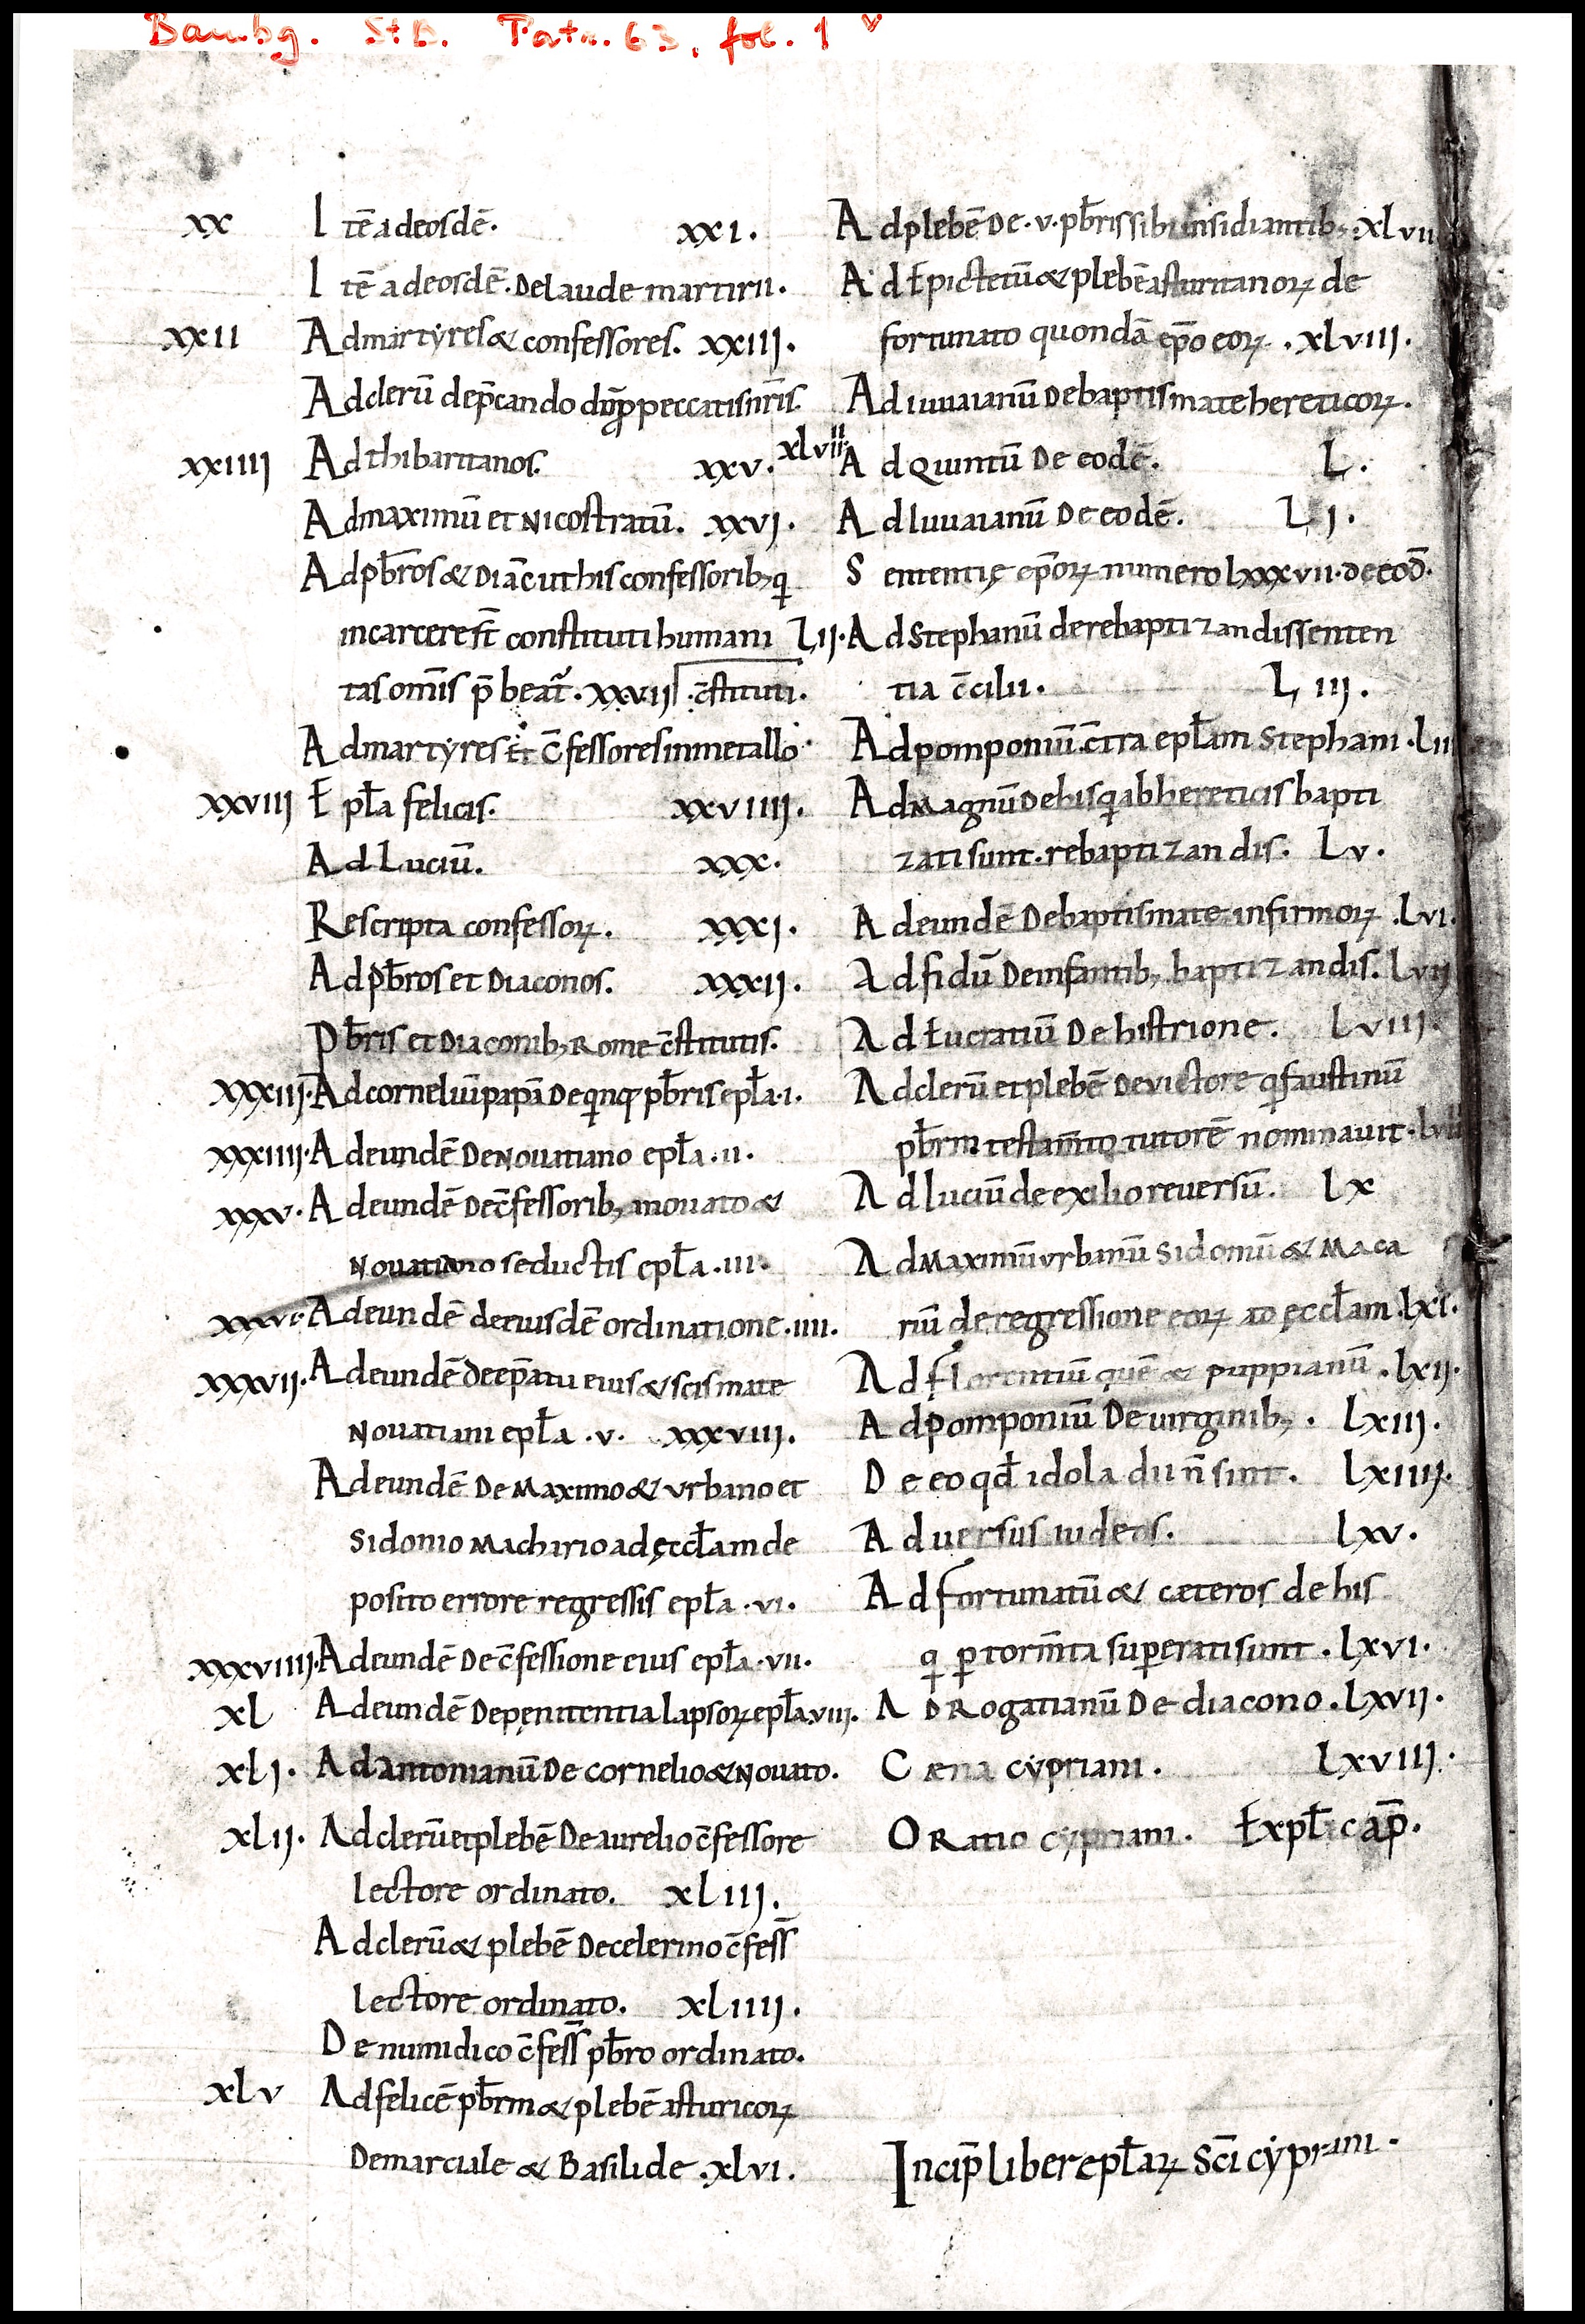 Bambg. StB. Patr. 63, fol. 1 v
xx Itē adeosdē. xxi.
Itē adeosdē. De laude martirii.
xxii Admartyres & confessores. xxiii.
Adclerū dep̄cando dn̄m p̱ peccatis nr̄is.
xxiiii Adthibaritanos. xxv.
Admaximū et Nicostratū. xxvi.
Adpb̄ros & Diac̄ ut his confessorib; qi
incarcere st̄ constituti humani
tas om̄is p̄beat᷑. xxvii c̄stituti.
Admartyres Et c̄fessores in metallo.
xxviii Epl̄a felicis. xxviiii.
Ad Luciū. xxx.
Rescripta confessoꝝ. xxxi.
Adpb̄ros et Diaconos. xxxii.
Pb̄ris et Diaconib; Rome c̄stitutis.
xxxiii. Adcorneliū papā De qinq; pb̄ris epl̄a .i.
xxxiiii. Adeundē De Nouatiano epl̄a .ii.
xxxv. Adeundē De c̄fessorib; anouato &
Nouatiano seductis epl̄a .iii.
xxxvi. Adeundē de eiusdē ordinatione .iiii.
xxxvii. Adeundē De ep̄atu eius & scismate
Nouatiani epl̄a .v. xxxviii.
Adeundē De Maximo & Vrbano et
Sidonio Machario ad ęccl̄am de
posito errore regressis epl̄a .vi.
xxxviiii. Adeundē De c̄fessione eius epl̄a .vii.
xl Adeundē De penitentia lapsoꝝ epl̄a .viii.
xli. Ad antonianū De cornelio & Nouato.
xlii. Adclerū et plebē De aurelio c̄fessore
lectore ordinato. xliii.
Adclerū & plebē De celerino c̄fess̄
lectore ordinato. xliiii.
De numidico c̄fess̄ pb̄ro ordinato.
xlv Adfelicē pb̄rm & plebē asturicoꝝ
De marciale & Basilide .xlvi.
Adplebē De .v. pb̄ris sibi insidiantib; .xlvii
Ad Epictetū & plebē assuritanoꝝ de
fortunato quondā ep̄o eoꝝ .xlviii.
Ad iuuaianū De baptismate hereticoꝝ.
xlviiii. Ad Quintū De eodē. L.
Ad Iuuaianū De eodē. Li.
Sententię ep̄oꝝ numero lxxxvii. de eod̄.
Lii. Ad Stephanū de rebaptizandis senten
tia c̄cilii. Liii.
Ad pomponiū c̄tra epl̄am Stephani .Lii
Ad Magnū De his qi ab hereticis bapti
zati sunt. rebaptizandis. Lv.
Adeundē De baptismate infirmoꝝ .Lvi.
Ad fidū De infantib; baptizandis. Lvii
Ad Eucratiū De histrione. Lviii.
Adclerū et plebē De victore qi faustinū
pb̄rm testam̄to tutorē nominauit .Lviiii
Ad luciū de exilio reuersū. Lx
Ad Maximū Vrbanū Sidoniū & Maca
riū de regressione eoꝝ ad ęccl̄am .lxi.
Ad florentiū quē & puppianū .lxii.
Ad Pomponiū De uirginib; . Lxiii.
De eo qd̄ idola dii n̄ sint. Lxiiii.
Aduersus iudeos. Lxv.
Ad fortunatū & cæteros de his
qi ꝑ torm̄ta superati sunt . Lxvi.
AD Rogatianū De diacono . Lxvii.
Cæna cypriani. Lxviii.
ORatio cypriani. Expl̄ic cap̄.
Incip̄ Liber epl̄aꝝ Sc̄i cypriani.